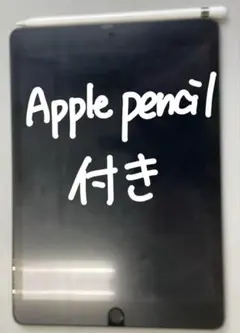 Apple pencil
付き